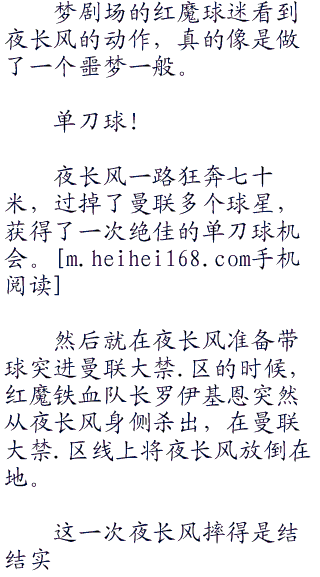 梦剧场的红魔球迷看到
夜长风的动作，真的像是做
了一个噩梦一般。
单刀球！
夜长风一路狂奔七十
米，过掉了曼联多个球星，
获得了一次绝佳的单刀球机
会。[m.heihei168.com手机
阅读]
然后就在夜长风准备带
球突进曼联大禁.区的时候，
红魔铁血队长罗伊基恩突然
从夜长风身侧杀出，在曼联
大禁.区线上将夜长风放倒在
地。
这一次夜长风摔得是结
结实